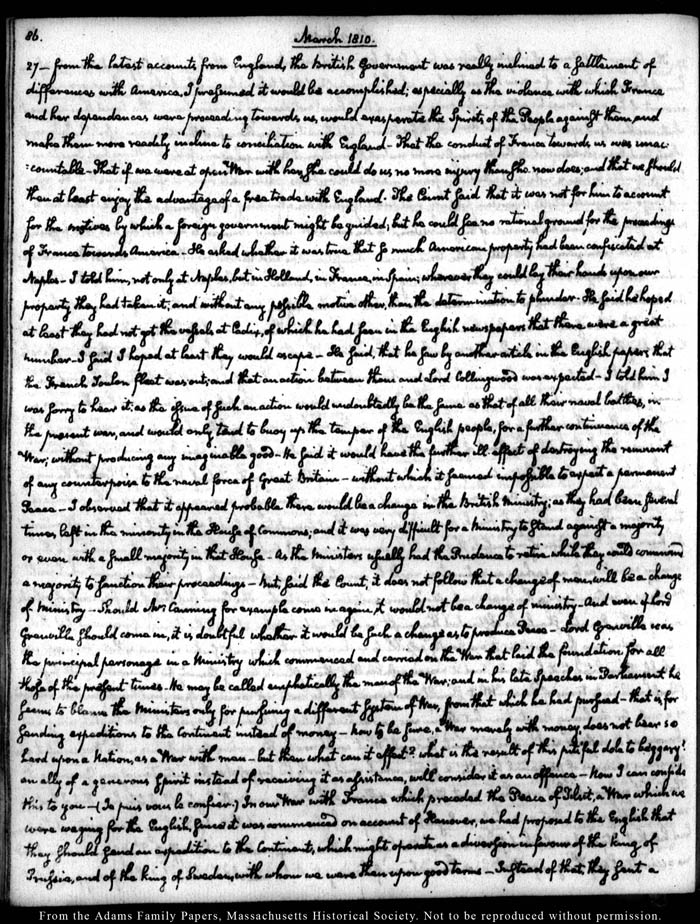 86.
March 1810.
27 — from the latest accounts from England, the British Government was really inclined to a settlement of
differences with America, I presumed it would be accomplished; especially as the violence with which France
and her dependencies were proceeding towards us, would exasperate the Spirits of the People against them, and
make them more readily incline to conciliation with England — That the conduct of France towards us was unac:
:countable — That if we were at open War with her, she could do us no more injury than she now does; and that we should
then at least enjoy the advantage of a free trade with England. The Count said that it was not for him to account
for the motives by which a foreign government might be guided; but he could see no rational ground for the proceedings
of France towards America — He asked whether it was true that so much American property had been confiscated at
Naples — I told him, not only at Naples, but in Holland, in France, in Spain; wherever they could lay their hands upon our
property they had taken it; and without any possible motive other, than the determination to plunder — He said he hoped
at least they had not got the vessels at Cadiz, of which he had seen in the English newspapers that there were a great
number — I said I hoped at least they would escape — He said, that he saw by another article in the English papers, that
the French Toulon fleet was out; and that an action between them and Lord Collingwood was expected — I told him I
was sorry to hear it; as the issue of such an action would undoubtedly be the same as that of all their naval battles, in
the present war, and would only tend to buoy up the temper of the English people, for a further continuance of the
War; without producing any imaginable good — He said it would have the further ill effect of destroying the remnant
of any counterpoise to the naval force of Great Britain — without which it seemed impossible to expect a permanent
Peace — I observed that it appeared probable there would be a change in the British Ministry; as they had been several
times left in the minority in the House of Commons; and it was very difficult for a Ministry to stand against a majority
or even with a small majority in that House — As the Ministers usually had the Prudence to retire while they could command
a majority to sanction their proceedings — But, said the Count, it does not follow that a change of men, will be a change
of Ministry — Should Mr. Canning for example come in again, it would not be a change of ministry — And even if Lord
Grenville should come in, it is doubtful whether it would be such a change as to produce Peace — Lord Grenville was
the principal personage in a Ministry which commenced and carried on the War that laid the foundation for all
those of the present times. He may be called emphatically the man of the War; and in his late Speeches in Parliament he
seems to blame the Ministers only for pursuing a different System of War, from that which he had pursued — that is for
sending expeditions to the Continent instead of money — now to be sure, a War merely with money, does not bear so
hard upon a Nation, as a War with men — but then what can it effect? what is the result of this pitiful dole to beggary?
an ally of a generous Spirit instead of receiving it as assistance, will consider it as an offence — Now I can confide
this to you — (Je puis vous le confier.) In our War with France which preceded the Peace of Tilsit, a War which we
were waging for the English, since it was commenced on account of Hanover, we had proposed to the English that
they should send an expedition to the Continent, which might operate as a diversion in favour of the king of
Prussia, and of the king of Sweden, with whom we were then upon good terms — Instead of that, they sent a
From the Adams Family Papers, Massachusetts Historical Society. Not to be reproduced without permission.